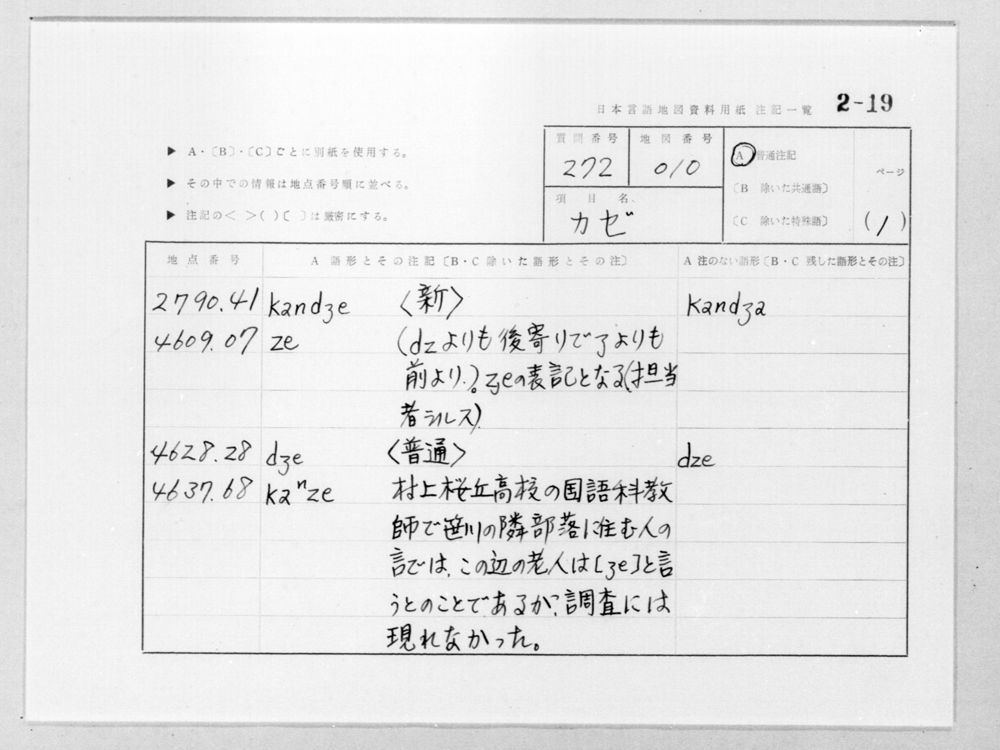 日本言語地図資料用紙 注記一覧 2-19
▶ A・〔B〕・〔C〕ごとに別紙を使用する。
▶ その中での情報は地点番号順に並べる。
▶ 注記の< >( )〔 〕は厳密にする。
質問番号 地図番号
272 010
項目名
カゼ
A 普通注記
〔B 除いた共通語〕
〔C 除いた特殊語〕
ページ
(1)
地点番号 A 語形とその注記〔B・C除いた語形とその注〕 A 注のない語形〔B・C 残した語形とその注〕
2790.41 kandʒe 〈新〉 kandʒa
4609.07 ze (dzよりも後寄りでʒよりも
前より.)。ʒeの表記となる(担当
者シルス)
4628.28 dʒe 〈普通〉 dze
4637.68 kaⁿze 村上桜丘高校の国語科教
師で笹川の隣部落に住む人の
言では、この辺の老人は[ʒe]と言
うとのことであるが、調査には
現れなかった。